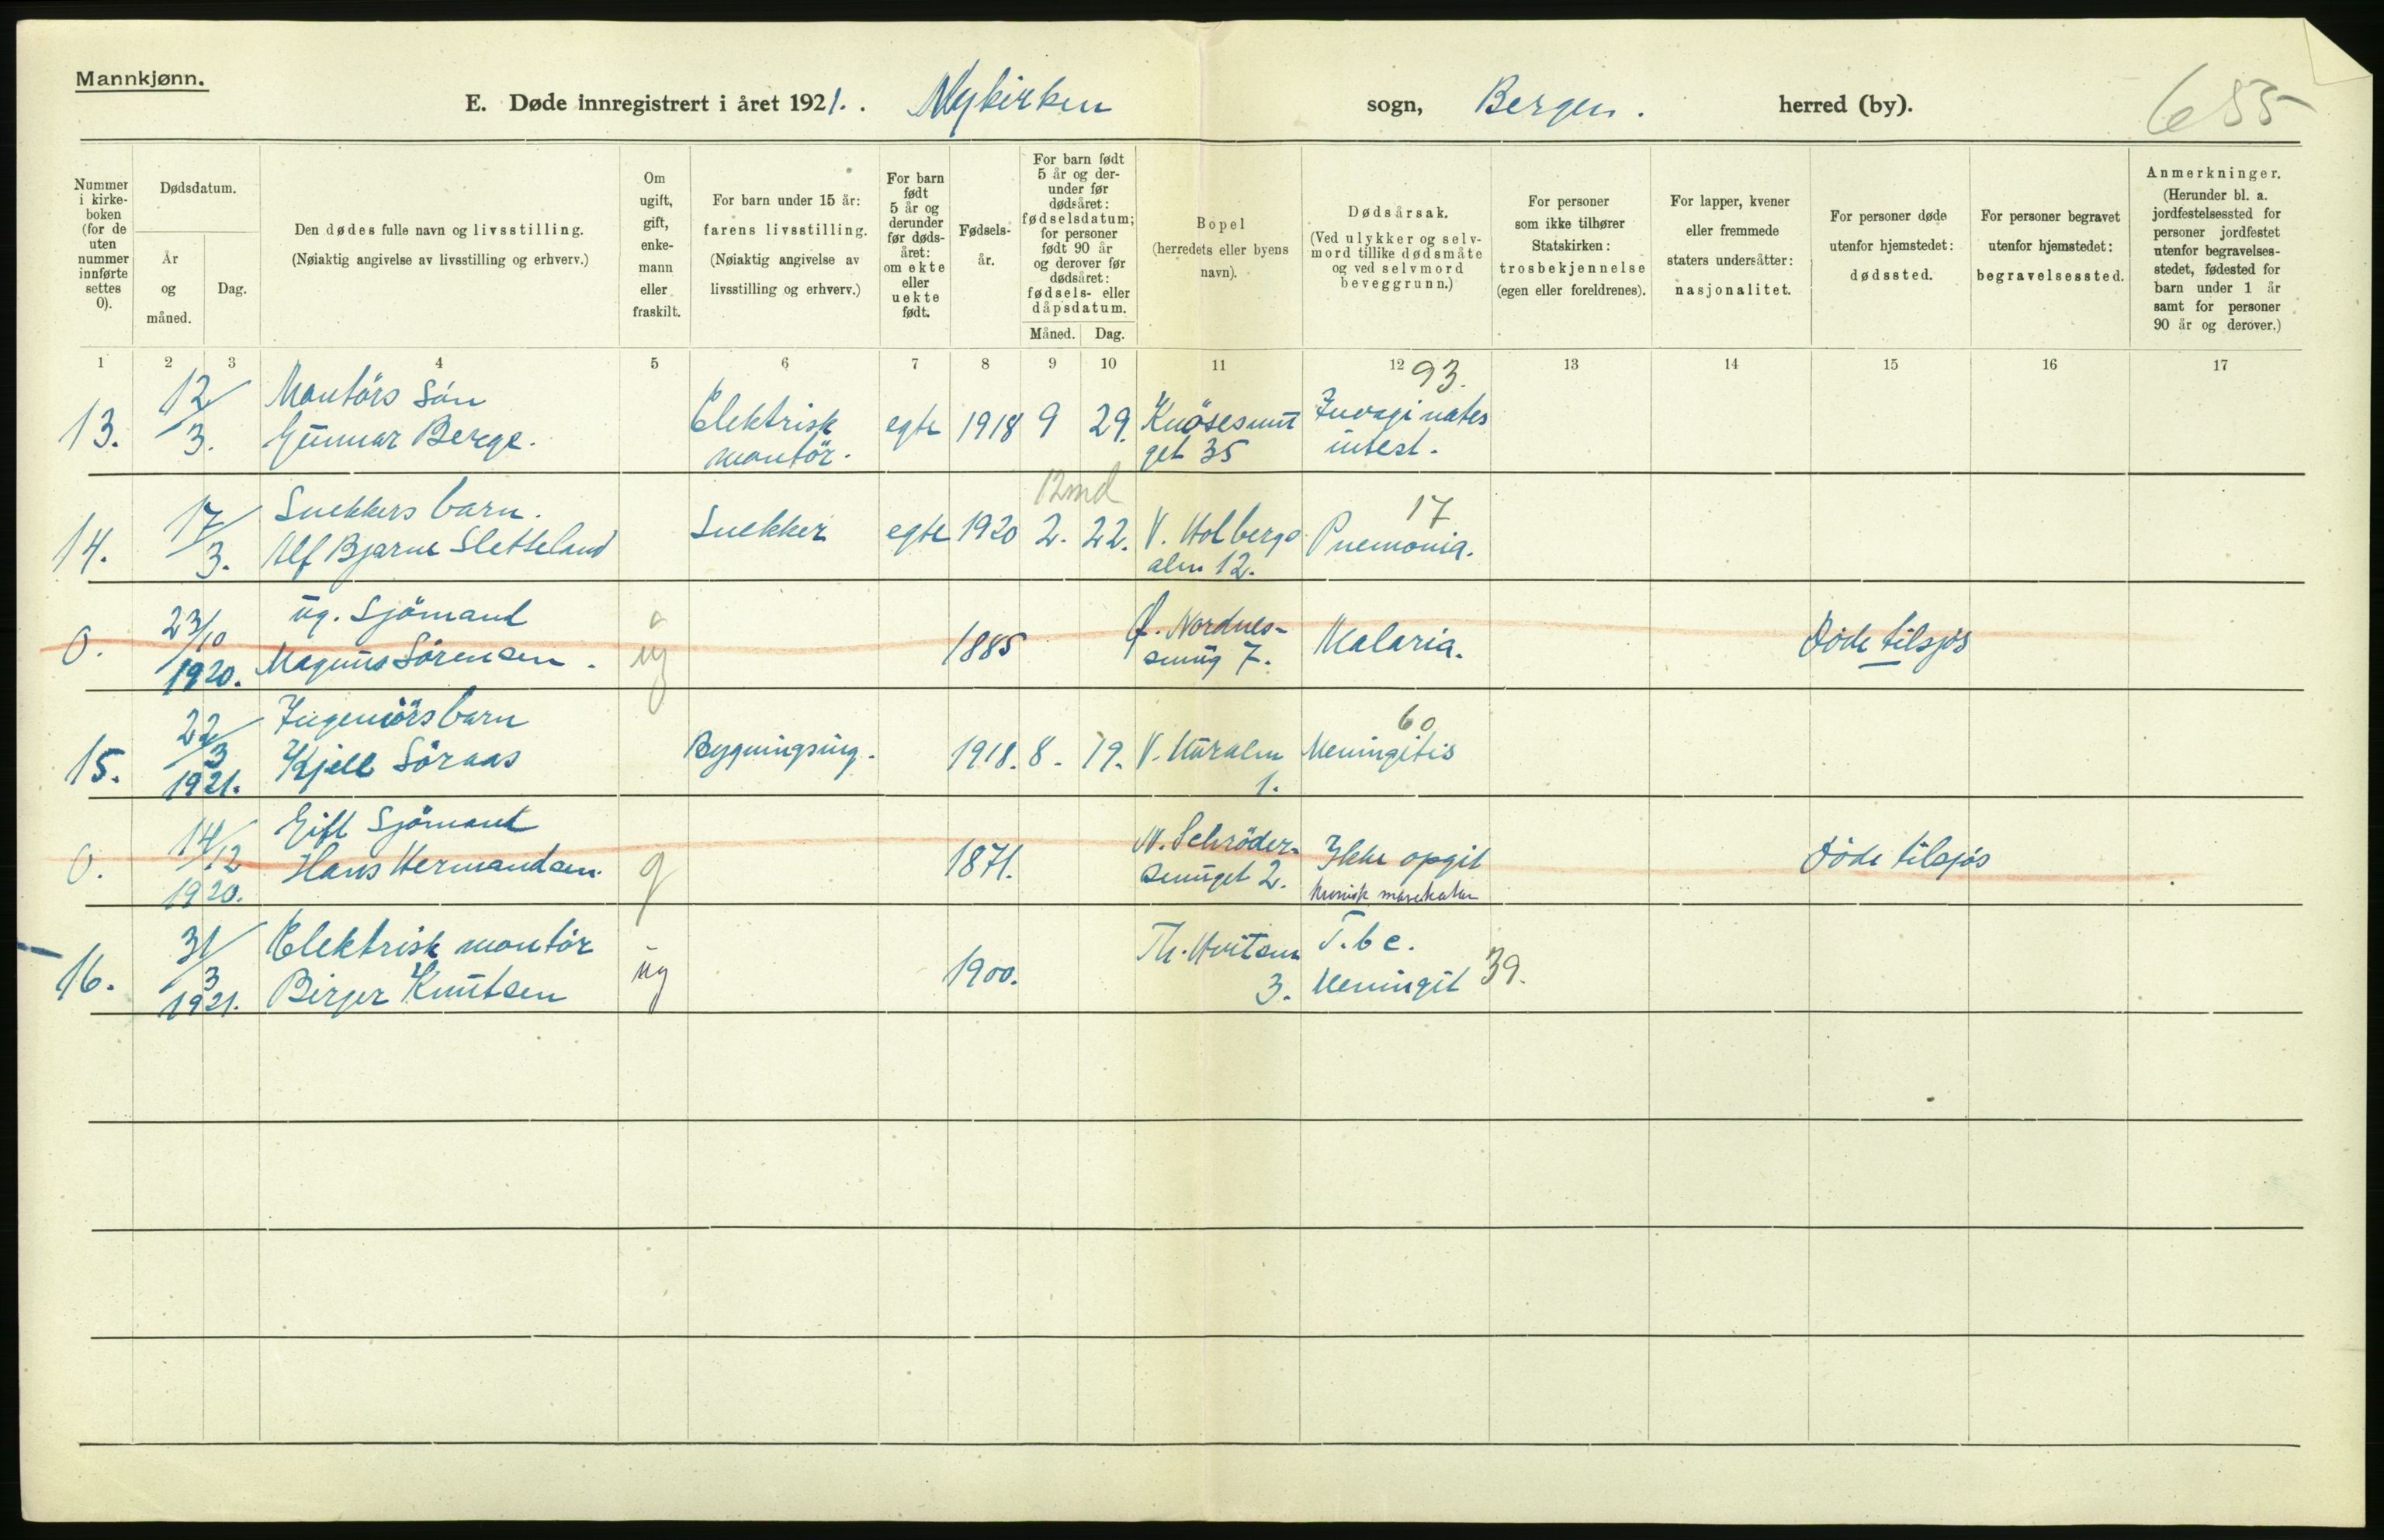 Mannkjønn.
E. Døde innregistrert i året 1921. . Nykirken sogn, Bergen. herred (by).
655
Nummer i kirke-boken (for de uten nummer innførte settes 0).
Dødsdatum.
År og måned.
Dag.
Den dødes fulle navn og livsstilling.
(Nøiaktig angivelse av livsstilling og erhverv.)
Om ugift, gift, enke-mann eller fraskilt.
For barn under 15 år:
farens livsstilling.
(Nøiaktig angivelse av livsstilling og erhverv.)
For barn født 5 år og derunder før døds-året: om ekte eller uekte født.
Fødsels-år.
For barn født 5 år og der-under før dødsåret: fødselsdatum; for personer født 90 år og derover før dødsåret: fødsels- eller dåpsdatum.
Måned. Dag.
Bopel
(herredets eller byens navn).
Dødsårsak.
(Ved ulykker og selv-mord tillike dødsmåte og ved selvmord beveggrunn.)
For personer som ikke tilhører Statskirken:
trosbekjennelse
(egen eller foreldrenes).
For lapper, kvener eller fremmede staters undersåtter:
nasjonalitet.
For personer døde utenfor hjemstedet:
dødssted.
For personer begravet utenfor hjemstedet:
begravelsessted.
Anmerkninger.
(Herunder bl. a. jordfestelsessted for personer jordfestet utenfor begravelses-stedet, fødested for barn under 1 år samt for personer 90 år og derover.)
1 2 3 4 5 6 7 8 9 10 11 12 13 14 15 16 17
93.
13. 12/3. Montörs Sön
Gunnar Berge. Elektrisk montör. egte 1918 9 29. Knösesmu
get 35 Invaginates
intest.
12 md
17
14. 17/3. Snekkers barn.
Alf Bjarne Sletteland Snekker egte 1920 2. 22. V. Holbergs
alm 12. Pnemonia.
0. 23/10 1920. ug. Sjömand
Magnus Sörensen. ug 1885 Ø. Nordnes-
smug 7. Malaria. Döde tilsjös
60
15. 22/3 1921. Ingeniörs barn
Kjell Söraas Bygningsing. 1918. 8. 19. V. Muralm
1. Meningitis
0. 14/12 1920. Gift Sjömand
Hans Hermandsen. g 1871. N. Schröder-
smuget 2. Ikke opgit
Kronisk Döde tilsjös
16. 31/3 1921. Elektrisk montör
Birger Knutsen ug 1900. 3. T.b c.
Meningit 39.